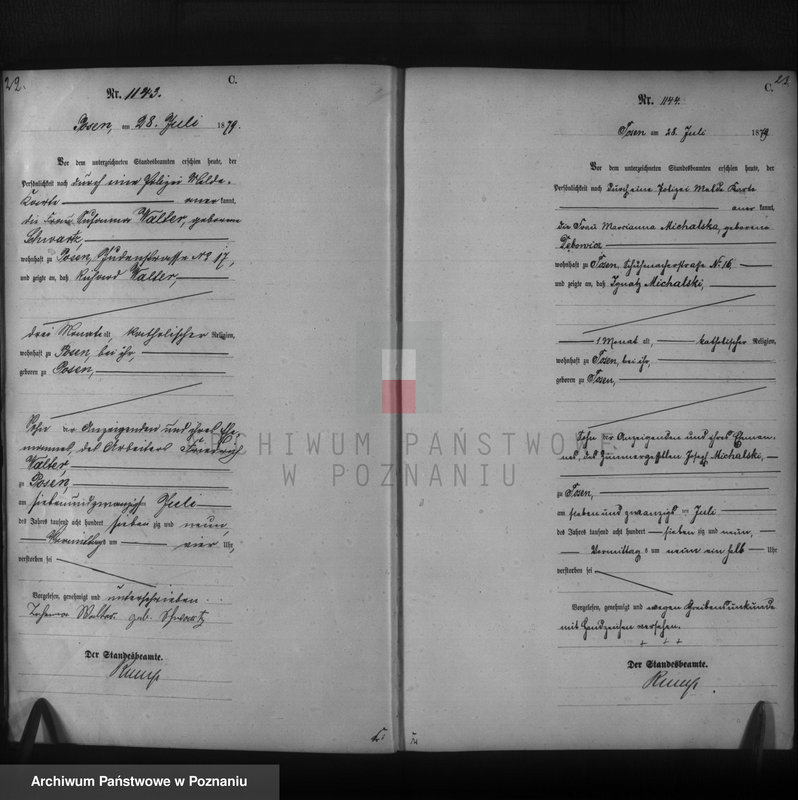 22.
C.
Nr. 1143.
Posen, am 28. Juli 1879.
Vor dem unterzeichneten Standesbeamten erschien heute, der
Persönlichkeit nach durch eine Polizei Melde-
Karte anerkannt,
die Frau Susanna Walter, geborene
Schwartz,
wohnhaft zu Posen, Judenstrasse No 17,
und zeigte an, daß Richard Walter,
drei Monate alt, katholischer Religion,
wohnhaft zu Posen, bei ihr,
geboren zu Posen,
Sohn der Anzeigenden und ihres Ehe-
mannes, des Arbeiters Friedrich
Walter,
zu Posen,
am siebenundzwanzigsten Juli
des Jahres tausend acht hundert siebenzig und neun,
Vormittags um vier Uhr,
verstorben sei
Vorgelesen, genehmigt und unterschrieben.
Walter geb. Schwartz
Der Standesbeamte.
23.
C.
Nr. 1144.
Posen am 28. Juli 1879
Vor dem unterzeichneten Standesbeamten erschien heute, der
Persönlichkeit nach durch eine Polizei Melde Karte
anerkannt,
die Frau Marianna Michalska, geborene
Dębowicz
wohnhaft zu Posen, Schuhmacherstraße Nr. 16
und zeigte an, daß Ignatz Michalski,
1 Monat alt, katholischer Religion,
wohnhaft zu Posen, bei ihr,
geboren zu Posen,
Sohn der Anzeigenden und ihres Ehman-
nes, des Zimmergesellen Josef Michalski,
zu Posen,
am sieben und zwanzigsten Juli
des Jahres tausend acht hundert siebenzig und neun,
Vormittags um neun ein halb Uhr
verstorben sei
Vorgelesen, genehmigt und wegen Schreibensunkunde
mit Handzeichen versehen.
+ + +
Der Standesbeamte.
ARCHIWUM PAŃSTWOWE
W POZNANIU
Archiwum Państwowe w Poznaniu